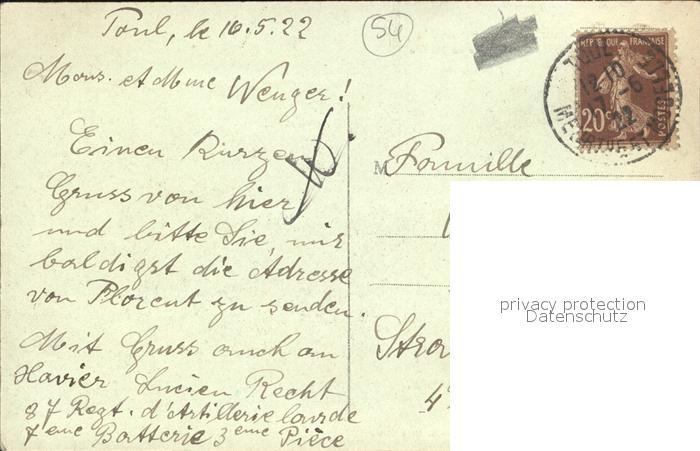 Toul, le 16.5.22
54
Mons. et Mme Wenger!
Einen kurzen
Gruss von hier
und bitte Sie, mir
baldigst die Adresse
von Florent zu senden.
Mit Gruss auch an
Xavier Lucien Recht
87 Regt. d'Artillerie lourde
7eme Batterie 3eme Pièce
REPUBLIQUE FRANÇAISE
20c
POSTES
TOUL
12 10
17 -6
22
M Famille
privacy protection
Datenschutz